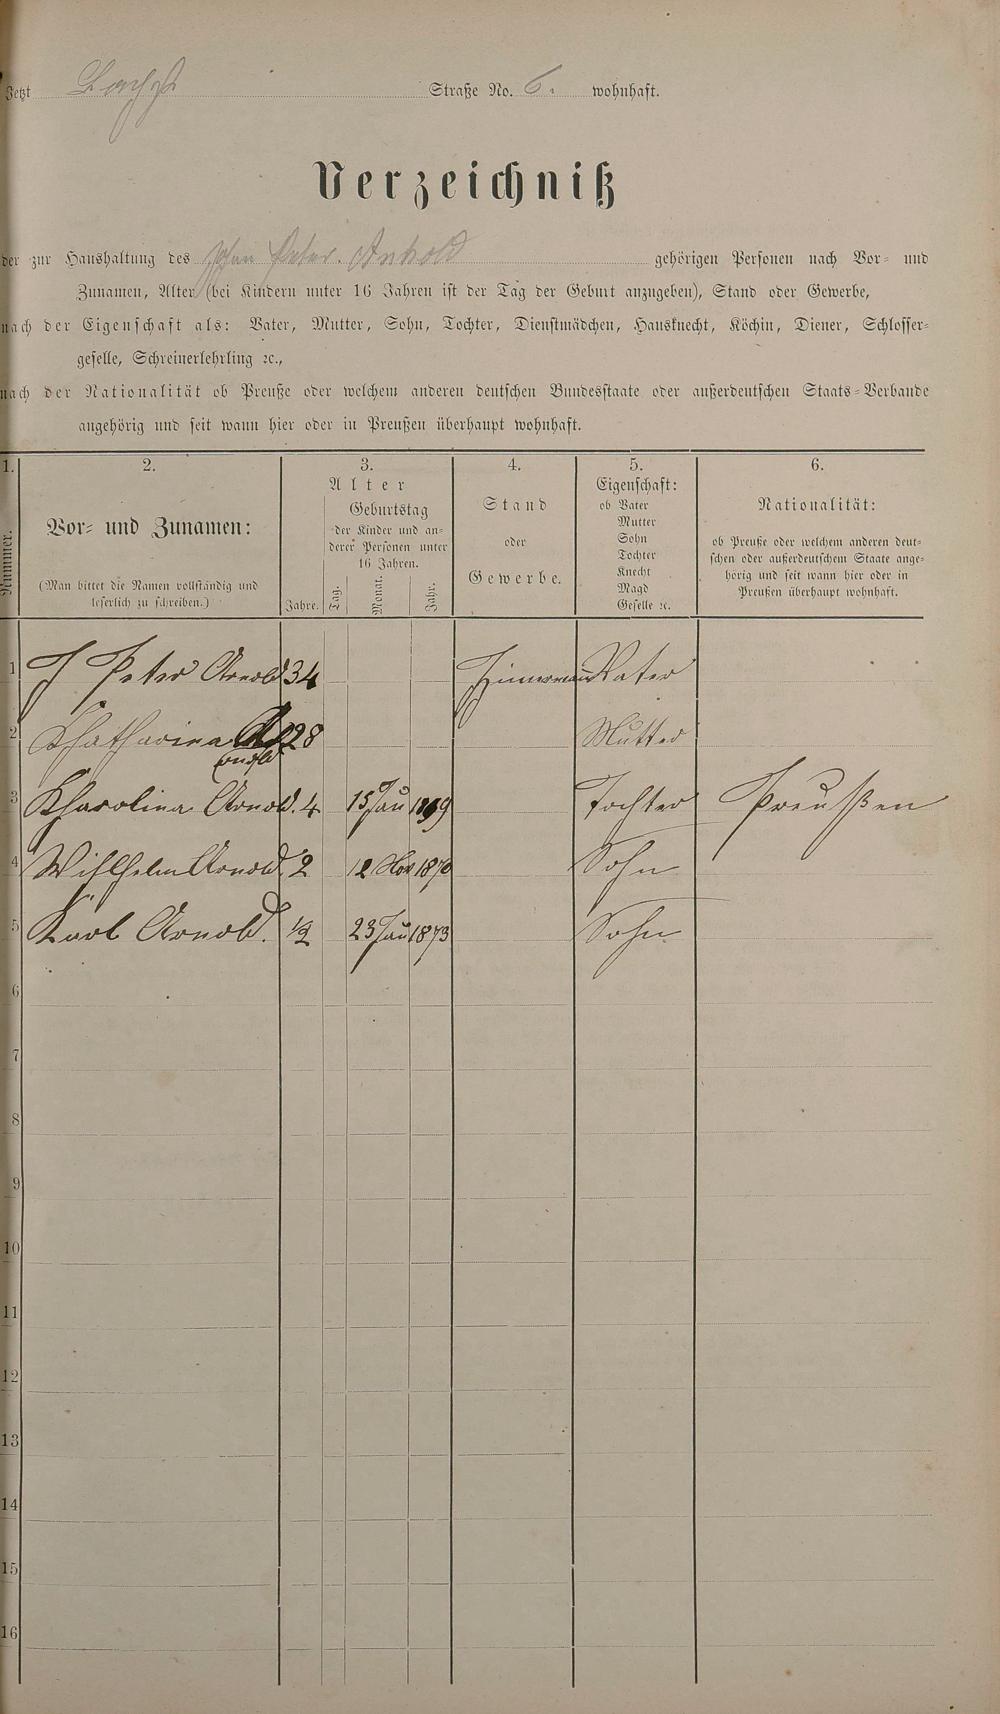 Jetzt Straße No. 6. wohnhaft.
Verzeichniß
der zur Haushaltung des Johan Peter Arnold gehörigen Personen nach Vor- und
Zunamen, Alter (bei Kindern unter 16 Jahren ist der Tag der Geburt anzugeben), Stand oder Gewerbe,
nach der Eigenschaft als: Vater, Mutter, Sohn, Tochter, Dienstmädchen, Hausknecht, Köchin, Diener, Schlosser-
geselle, Schreinerlehrling ꝛc.,
nach der Nationalität ob Preuße oder welchem anderen deutschen Bundesstaate oder außerdeutschen Staats-Verbande
angehörig und seit wann hier oder in Preußen überhaupt wohnhaft.
1. 2. 3. 4. 5. 6.
Nummer.
Vor- und Zunamen:
(Man bittet die Namen vollständig und
leserlich zu schreiben.)
Alter
Jahre.
Geburtstag
der Kinder und an-
derer Personen unter
16 Jahren.
Tag. Monat. Jahr.
Stand
oder
Gewerbe.
Eigenschaft:
ob Vater
Mutter
Sohn
Tochter
Knecht
Magd
Geselle ꝛc.
Nationalität:
ob Preuße oder welchem anderen deut-
schen oder außerdeutschem Staate ange-
hörig und seit wann hier oder in
Preußen überhaupt wohnhaft.
1 J Peter Arnold 34 Zimerman Vater
2 Khatharina Arnold 28 Mutter
3 Kharolina Arnold. 4 15 Jau 1869 Tochter Preußen
4 Wihlhelm Arnold. 2 12 Nov 1870 Sohn
5 Karl Arnold. 1/2 23 Jau 1873 Sohn
6
7
8
9
10
11
12
13
14
15
16